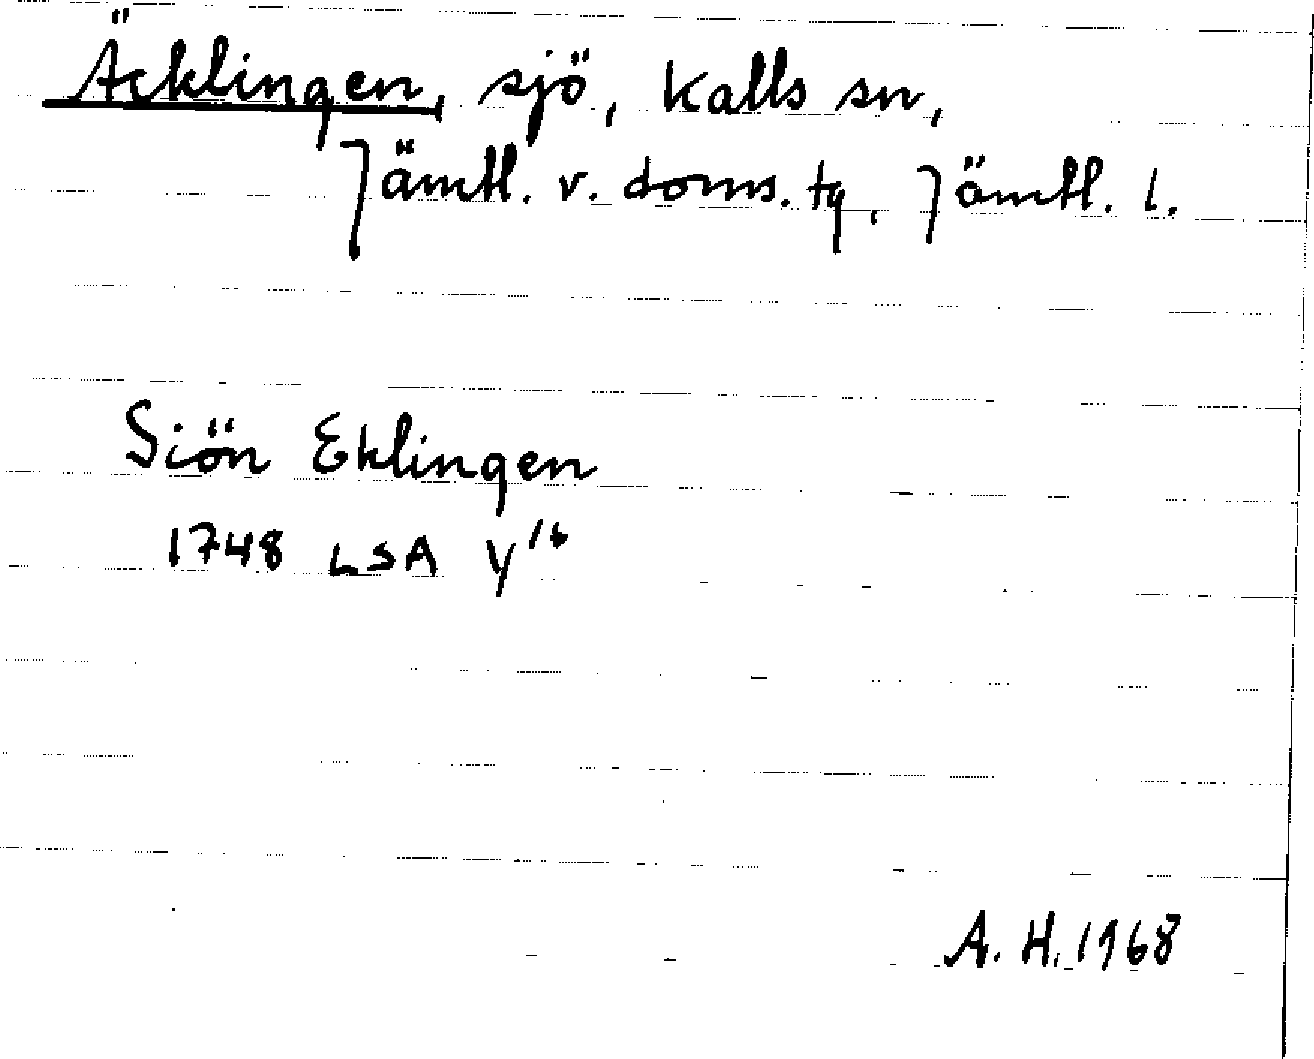 Äcklingen, sjö, Kalls sn,
Jämtl. v. doms. tg, Jämtl. l.
Siön Eklingen
1748 LSA Y¹⁶
A. H. 1968